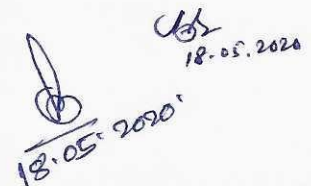 18.05.2020
18.05.2020